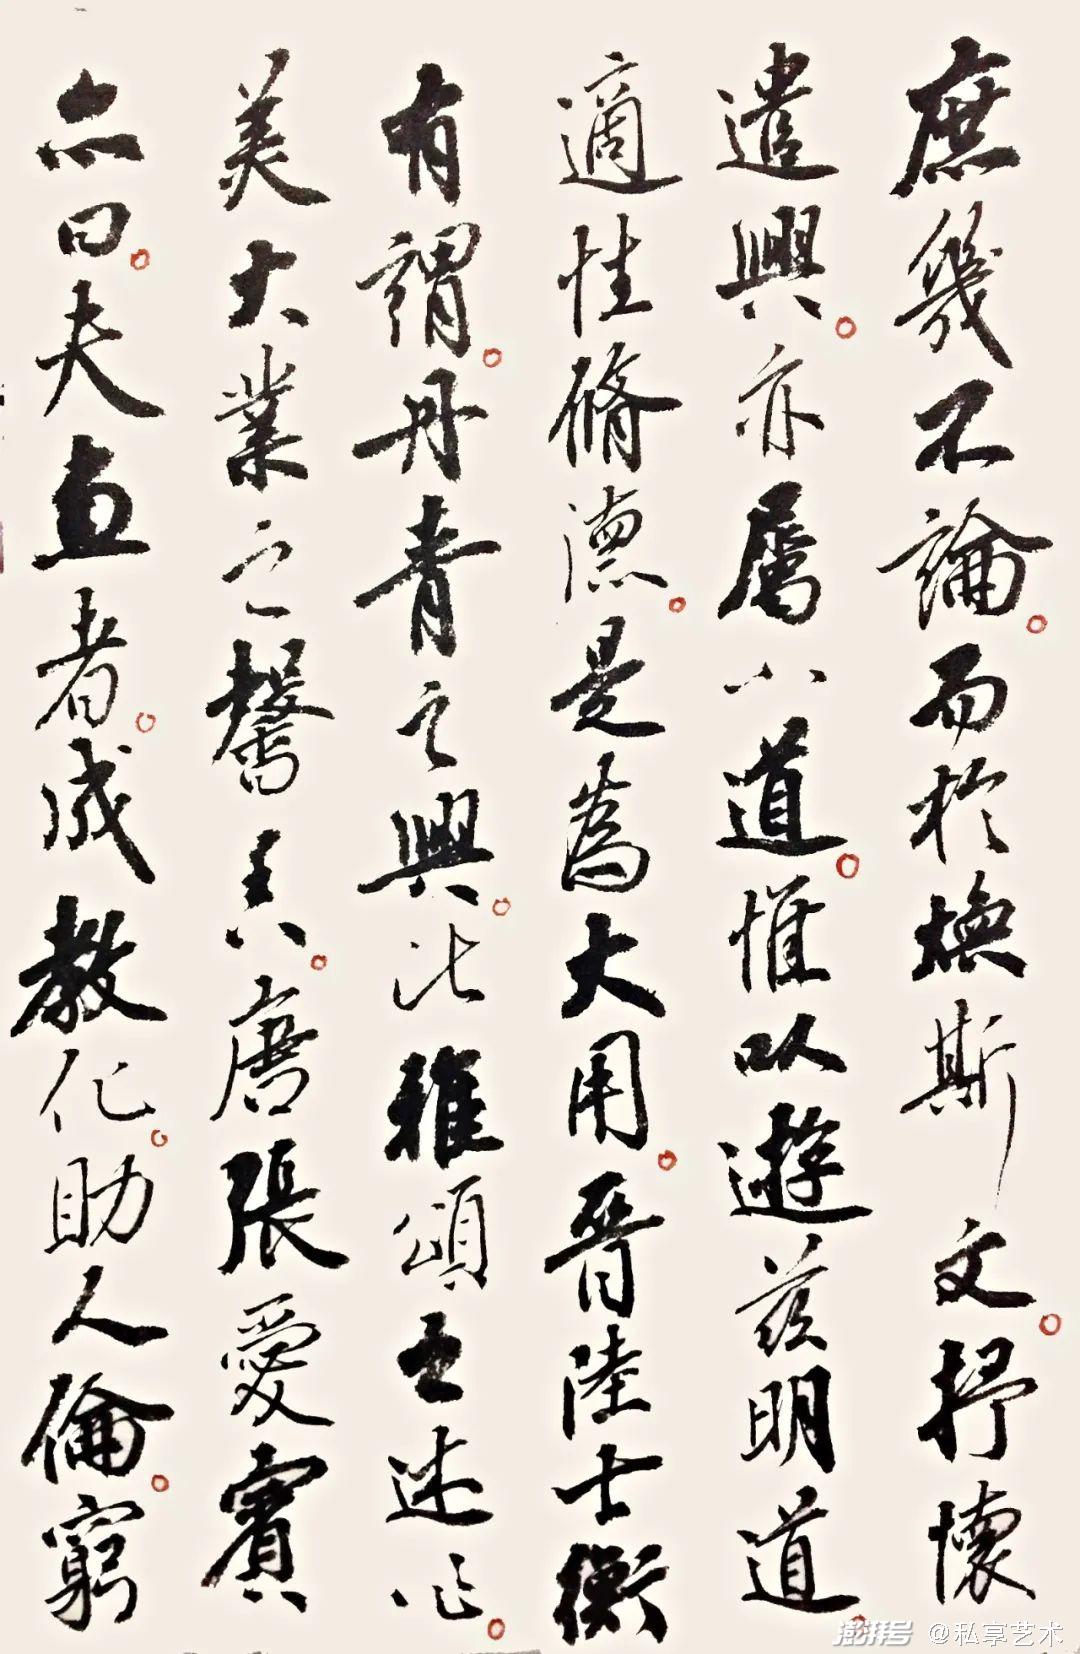 庶幾不論。而於撫斯文。抒懷
遣興。亦屬小道。惟以遊茲明道。
適性脩德。是為大用。晉陸士衡
有謂。丹青之興。比雅頌之述作。
美大業之馨香。唐張愛賓
亦曰。夫畫者。成教化。助人倫。窮
澎湃号 @私享艺术